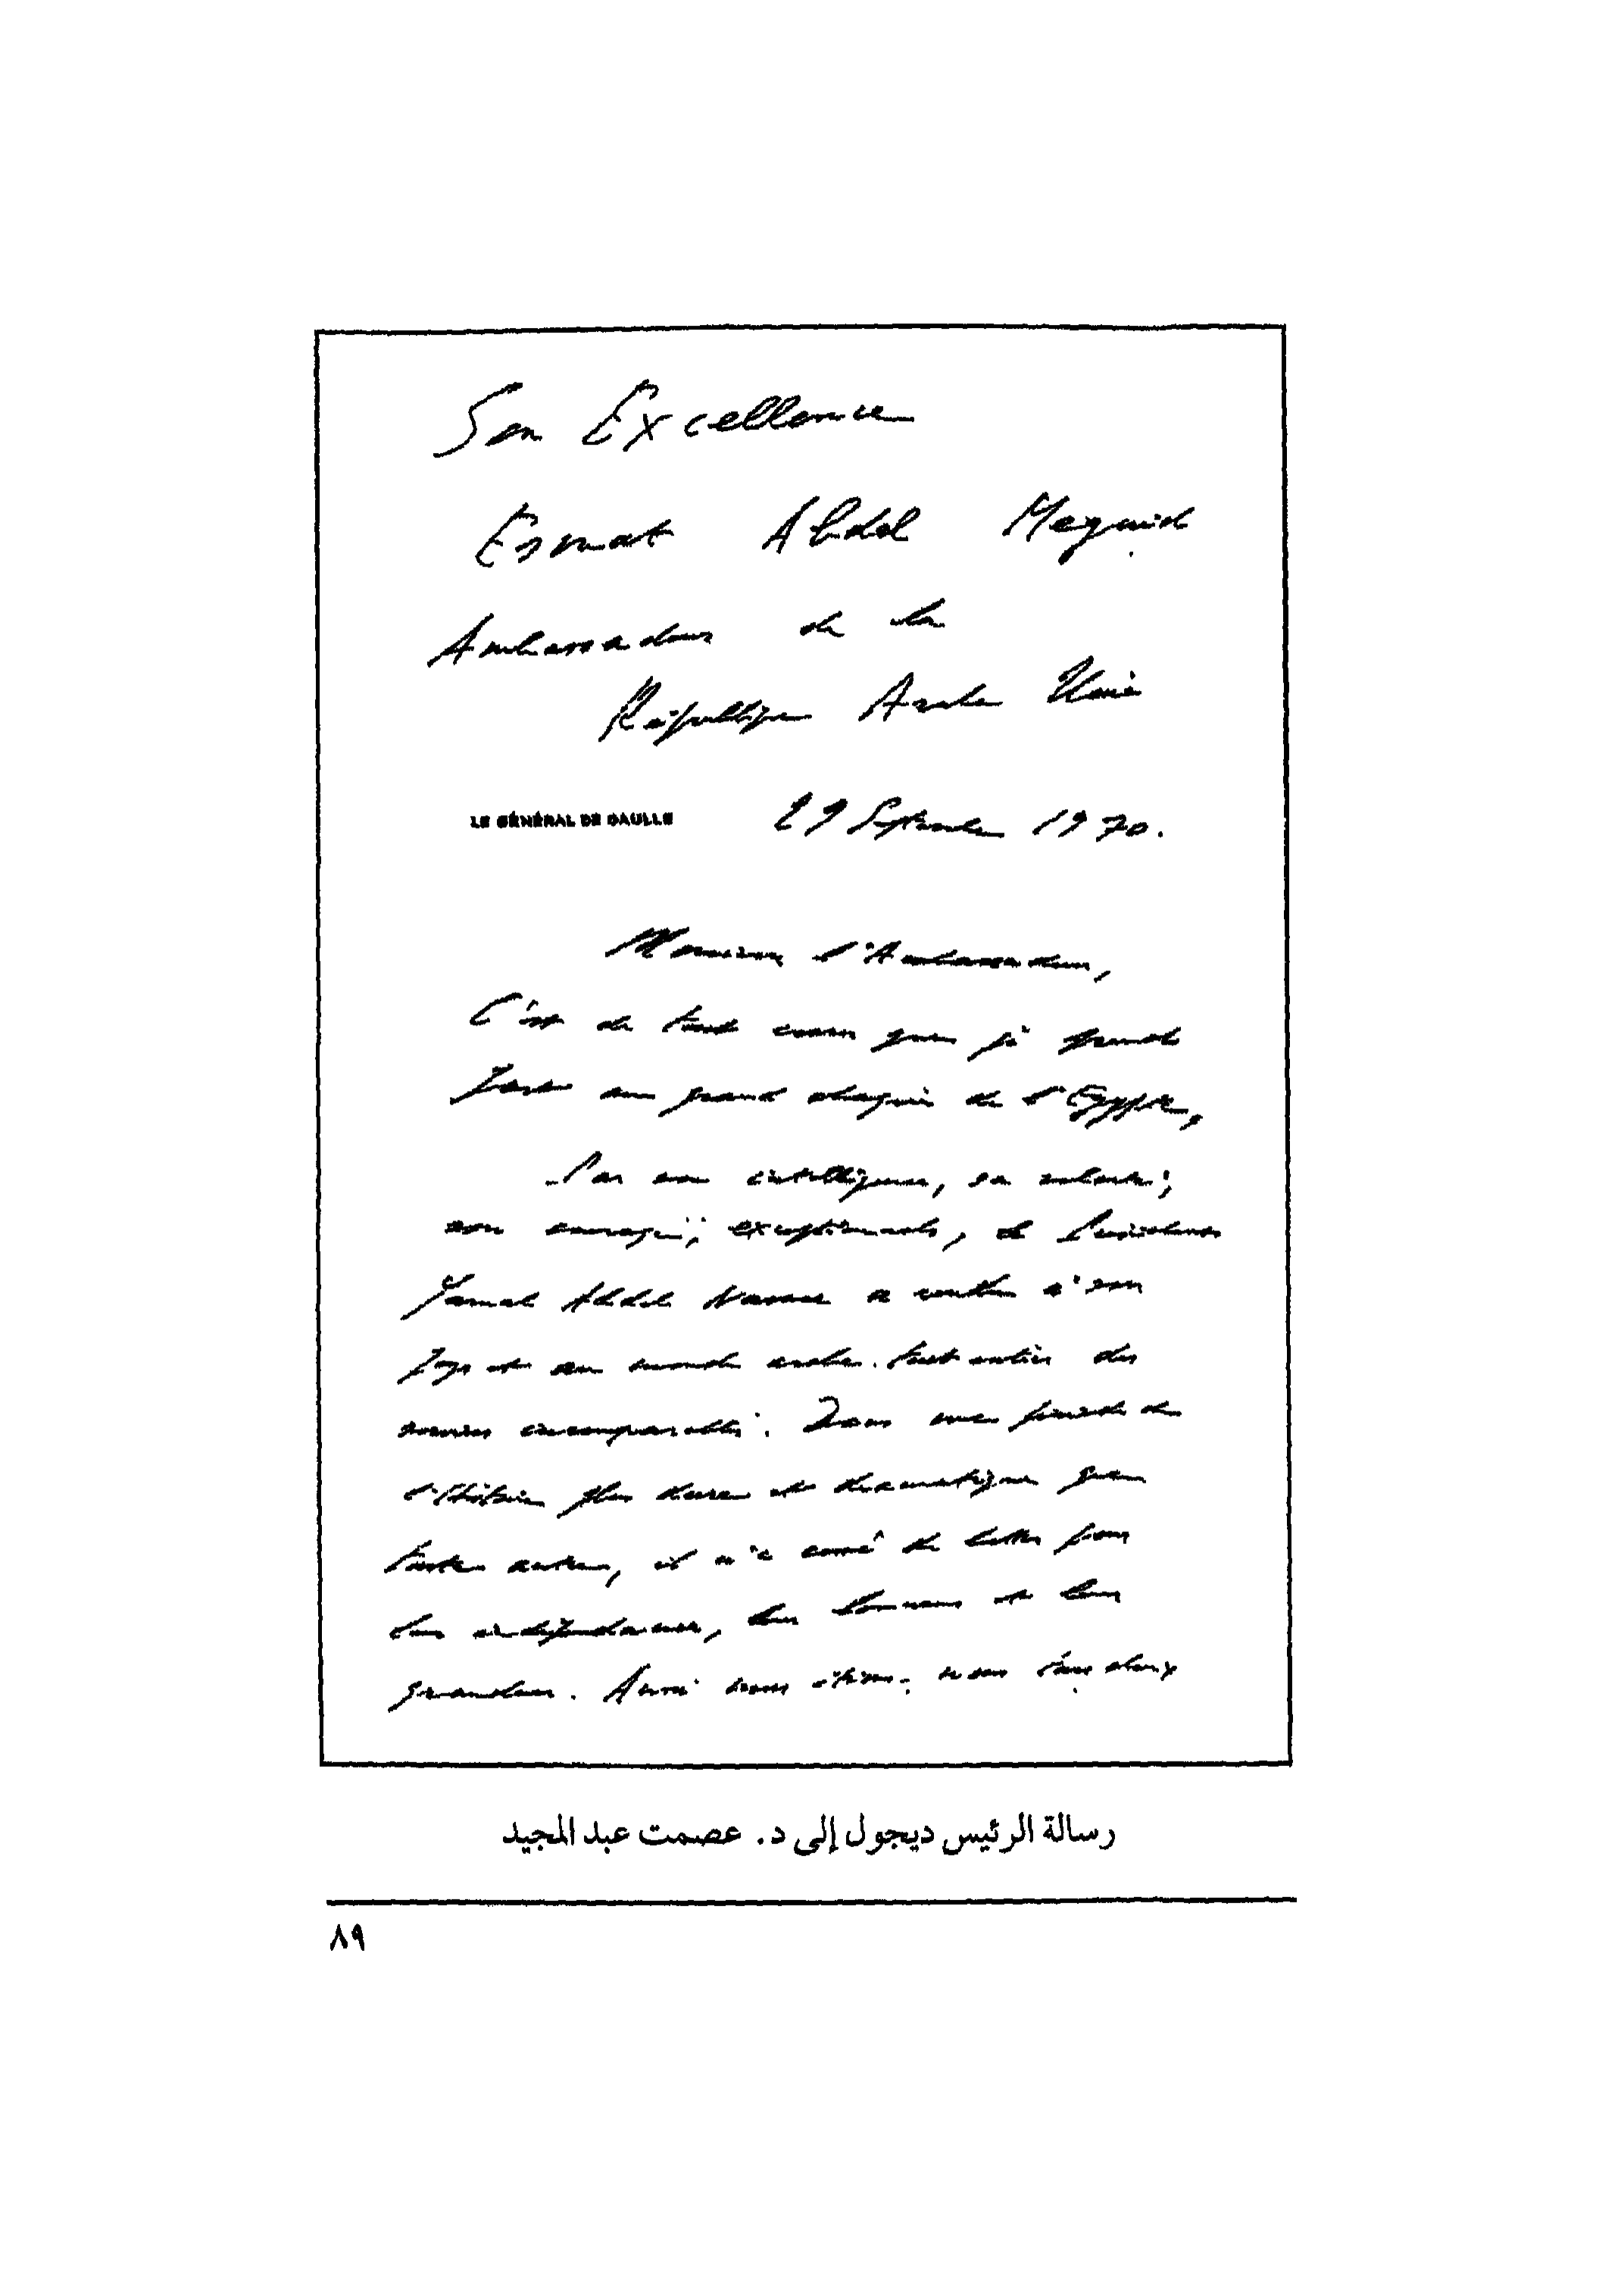 Son Excellence
Esmat Abdel Meguid
Ambassadeur de la
République Arabe Unie
LE GÉNÉRAL DE GAULLE 29 Septembre 1970.
Monsieur l'Ambassadeur,
C'est de tout coeur que je prends
part au grand chagrin de l'Egypte,
Par son intelligence, sa volonté,
son courage exceptionnels, le Président
Gamal Abdel Nasser a rendu à son
pays et au monde arabe tout entier des
services incomparables. Dans une période de
l'Histoire plus dure et dramatique que
toute autre, il n'a cessé de lutter pour
leur indépendance, leur honneur et leur
grandeur. Aussi nous étions-nous tous deux
رسالة الرئيس ديجول إلى د. عصمت عبد المجيد
٨٩